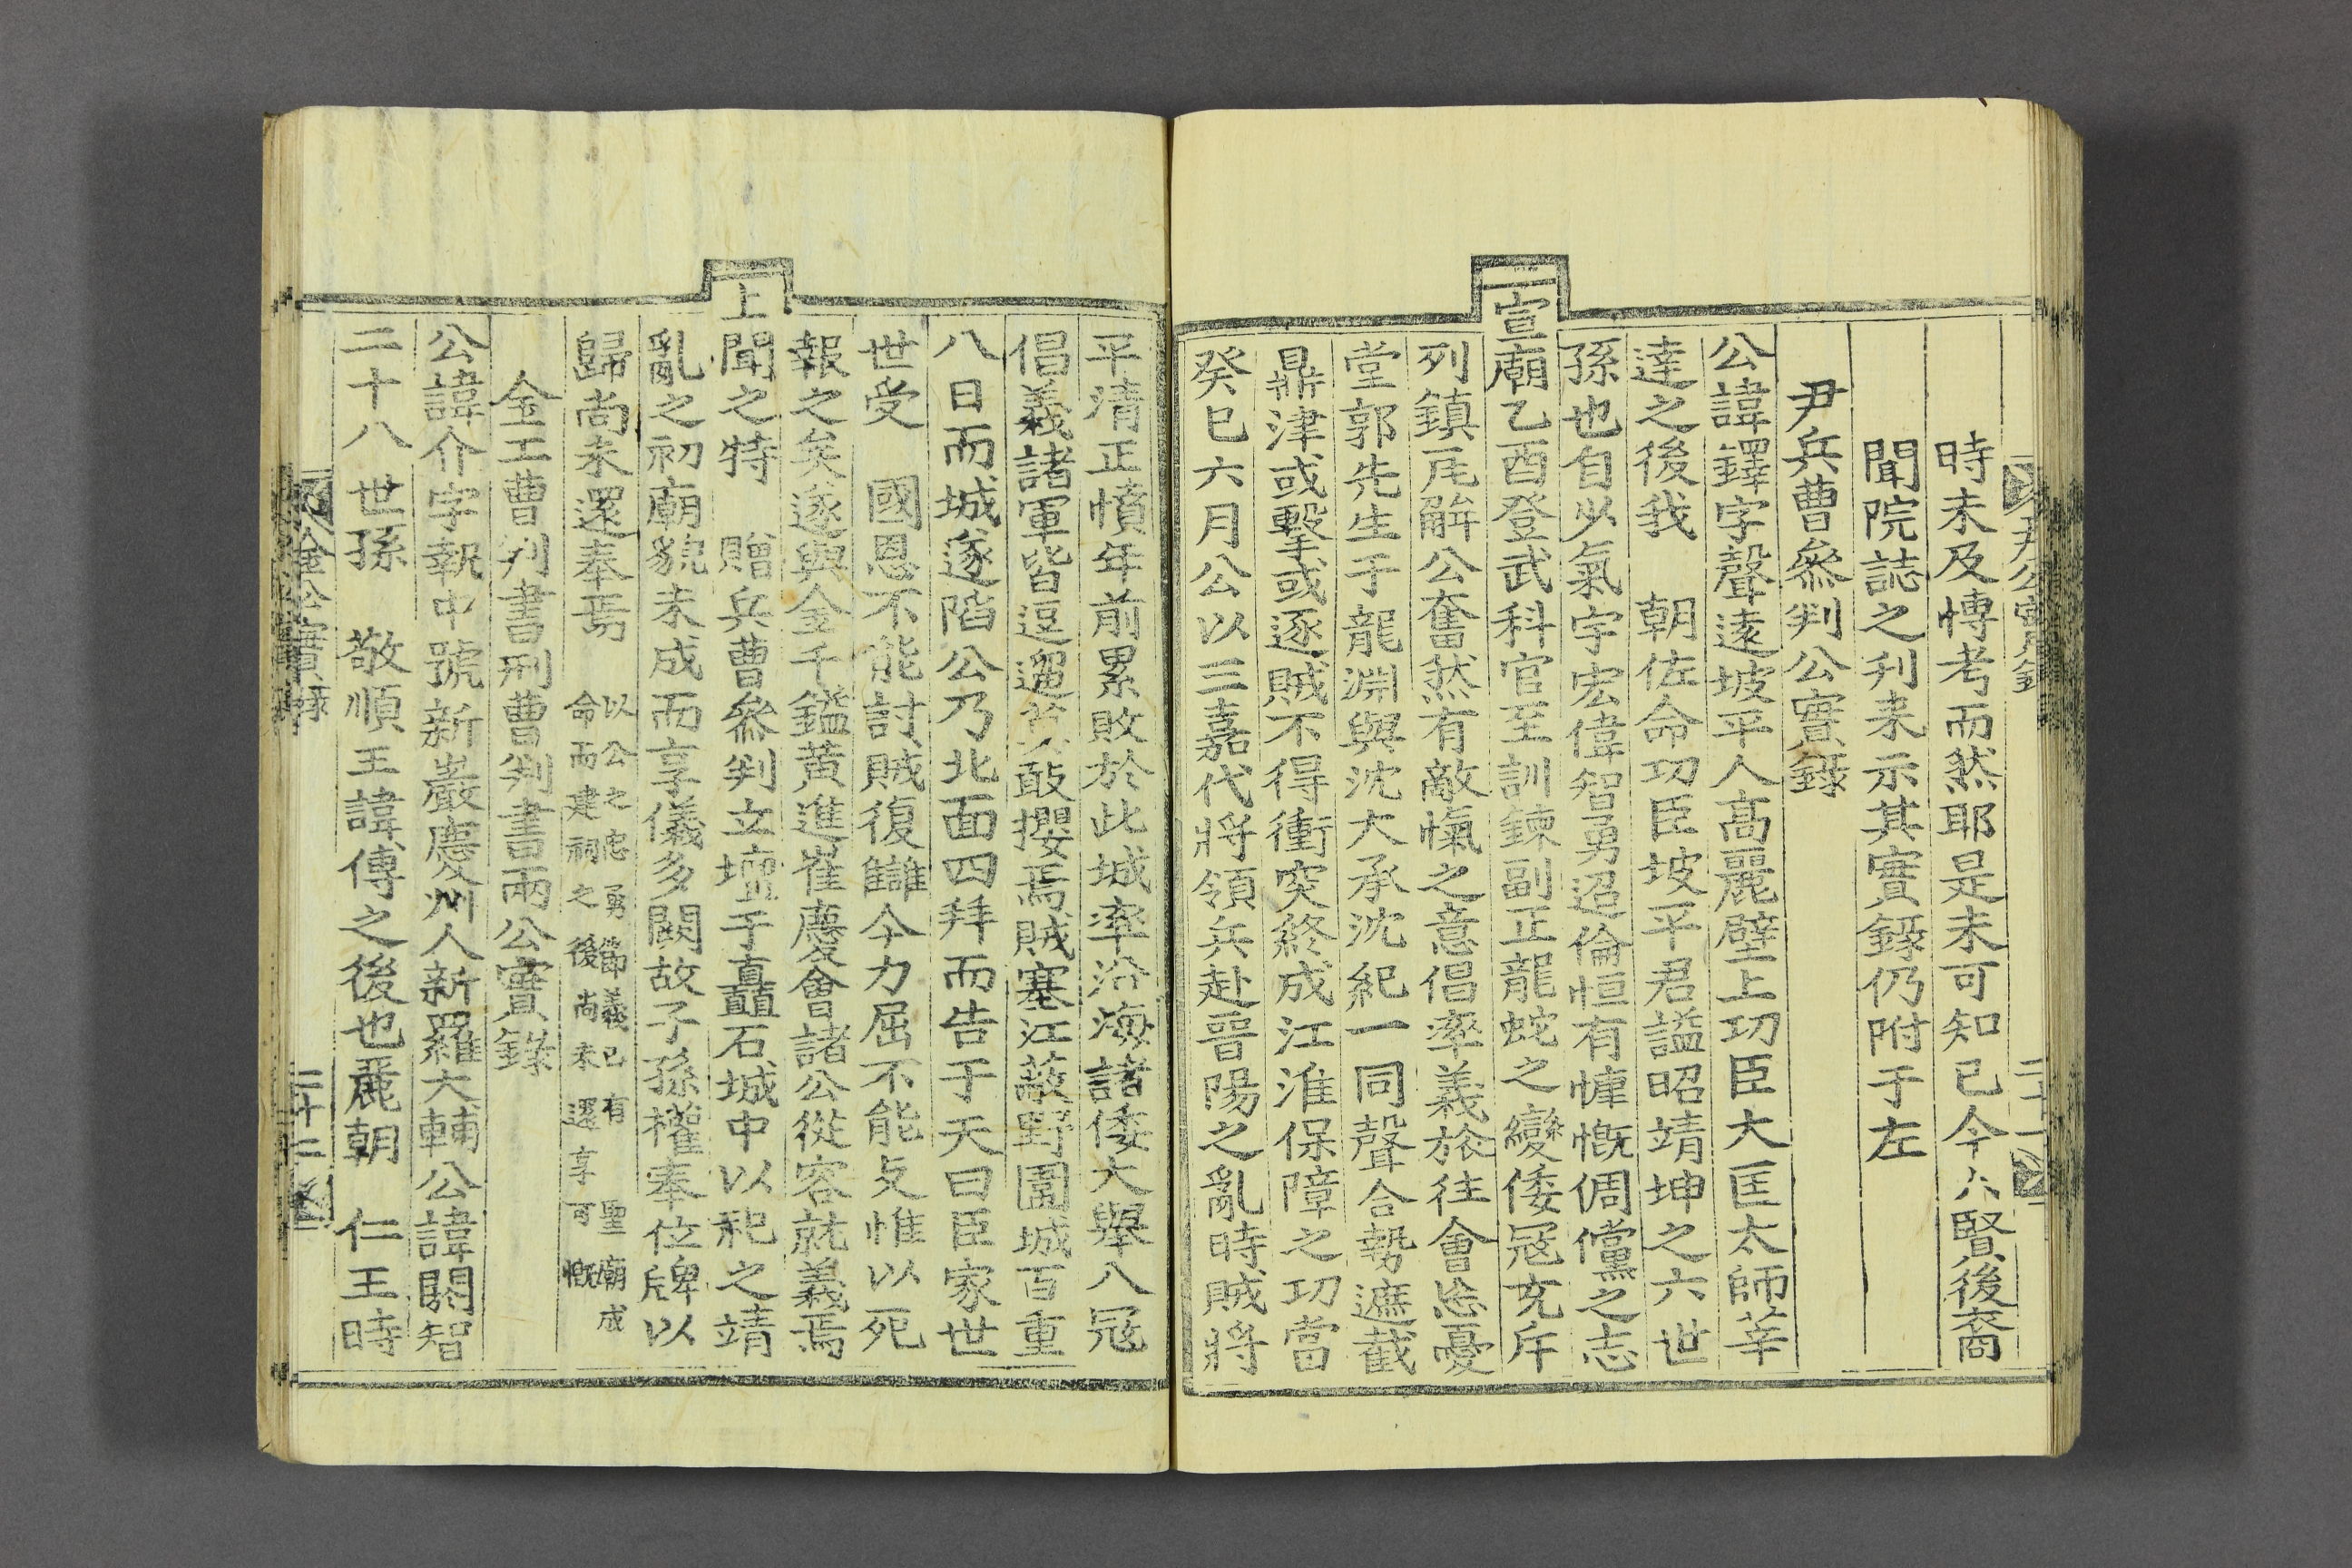 時未及愽考而然耶是未可知已今六賢後裔
聞院誌之刋来示其實錄仍附于左
尹兵曹叅判公實錄
公諱鐸字聲遠坡平人髙麗壁上㓛臣大匡太師莘
達之後我 朝佐命㓛臣坡平君謚昭靖坤之六世
孫也自少氣宇宏偉智勇迢倫恒有慷慨倜儻之志
宣廟乙酉登武科官至訓鍊副正龍蛇之變倭冦充斥
列鎮瓦觧公奮然有敵愾之意倡率義旅往會忘憂
堂郭先生于龍淵與沈大承沈紀一同聲合勢遮截
鼎津或擊或逐賊不得衝突終成江淮保障之功當
癸巳六月公以三嘉代將領兵赴晉陽之亂時賊將
平清正憤年前累敗於此城率沿海諸倭大舉入冦
倡義諸軍皆逗遛莫敢攖焉賊塞江蔽野圍城百重
八日而城遂陷公乃北面四拜而告于天曰臣家世
世受 國恩不能討賊復讎今力屈不能支惟以死
報之矣遂與金千鎰黄進崔慶會諸公從容就義焉
上聞之特 贈兵曹叅判立壇于矗石城中以祀之靖
亂之初廟貌未成而享儀多闕故子孫權奉位牌以
歸尚未還奉焉 以公之忠勇節義已有 聖廟成
命而建祠之後尚未還享可慨
金工曹判書刑曹判書兩公實錄
公諱介字執中號新巖慶州人新羅大輔公諱閼智
二十八世孫 敬順王諱傅之後也麗朝 仁王時
尹公實錄
二十一
金公實錄
二十二